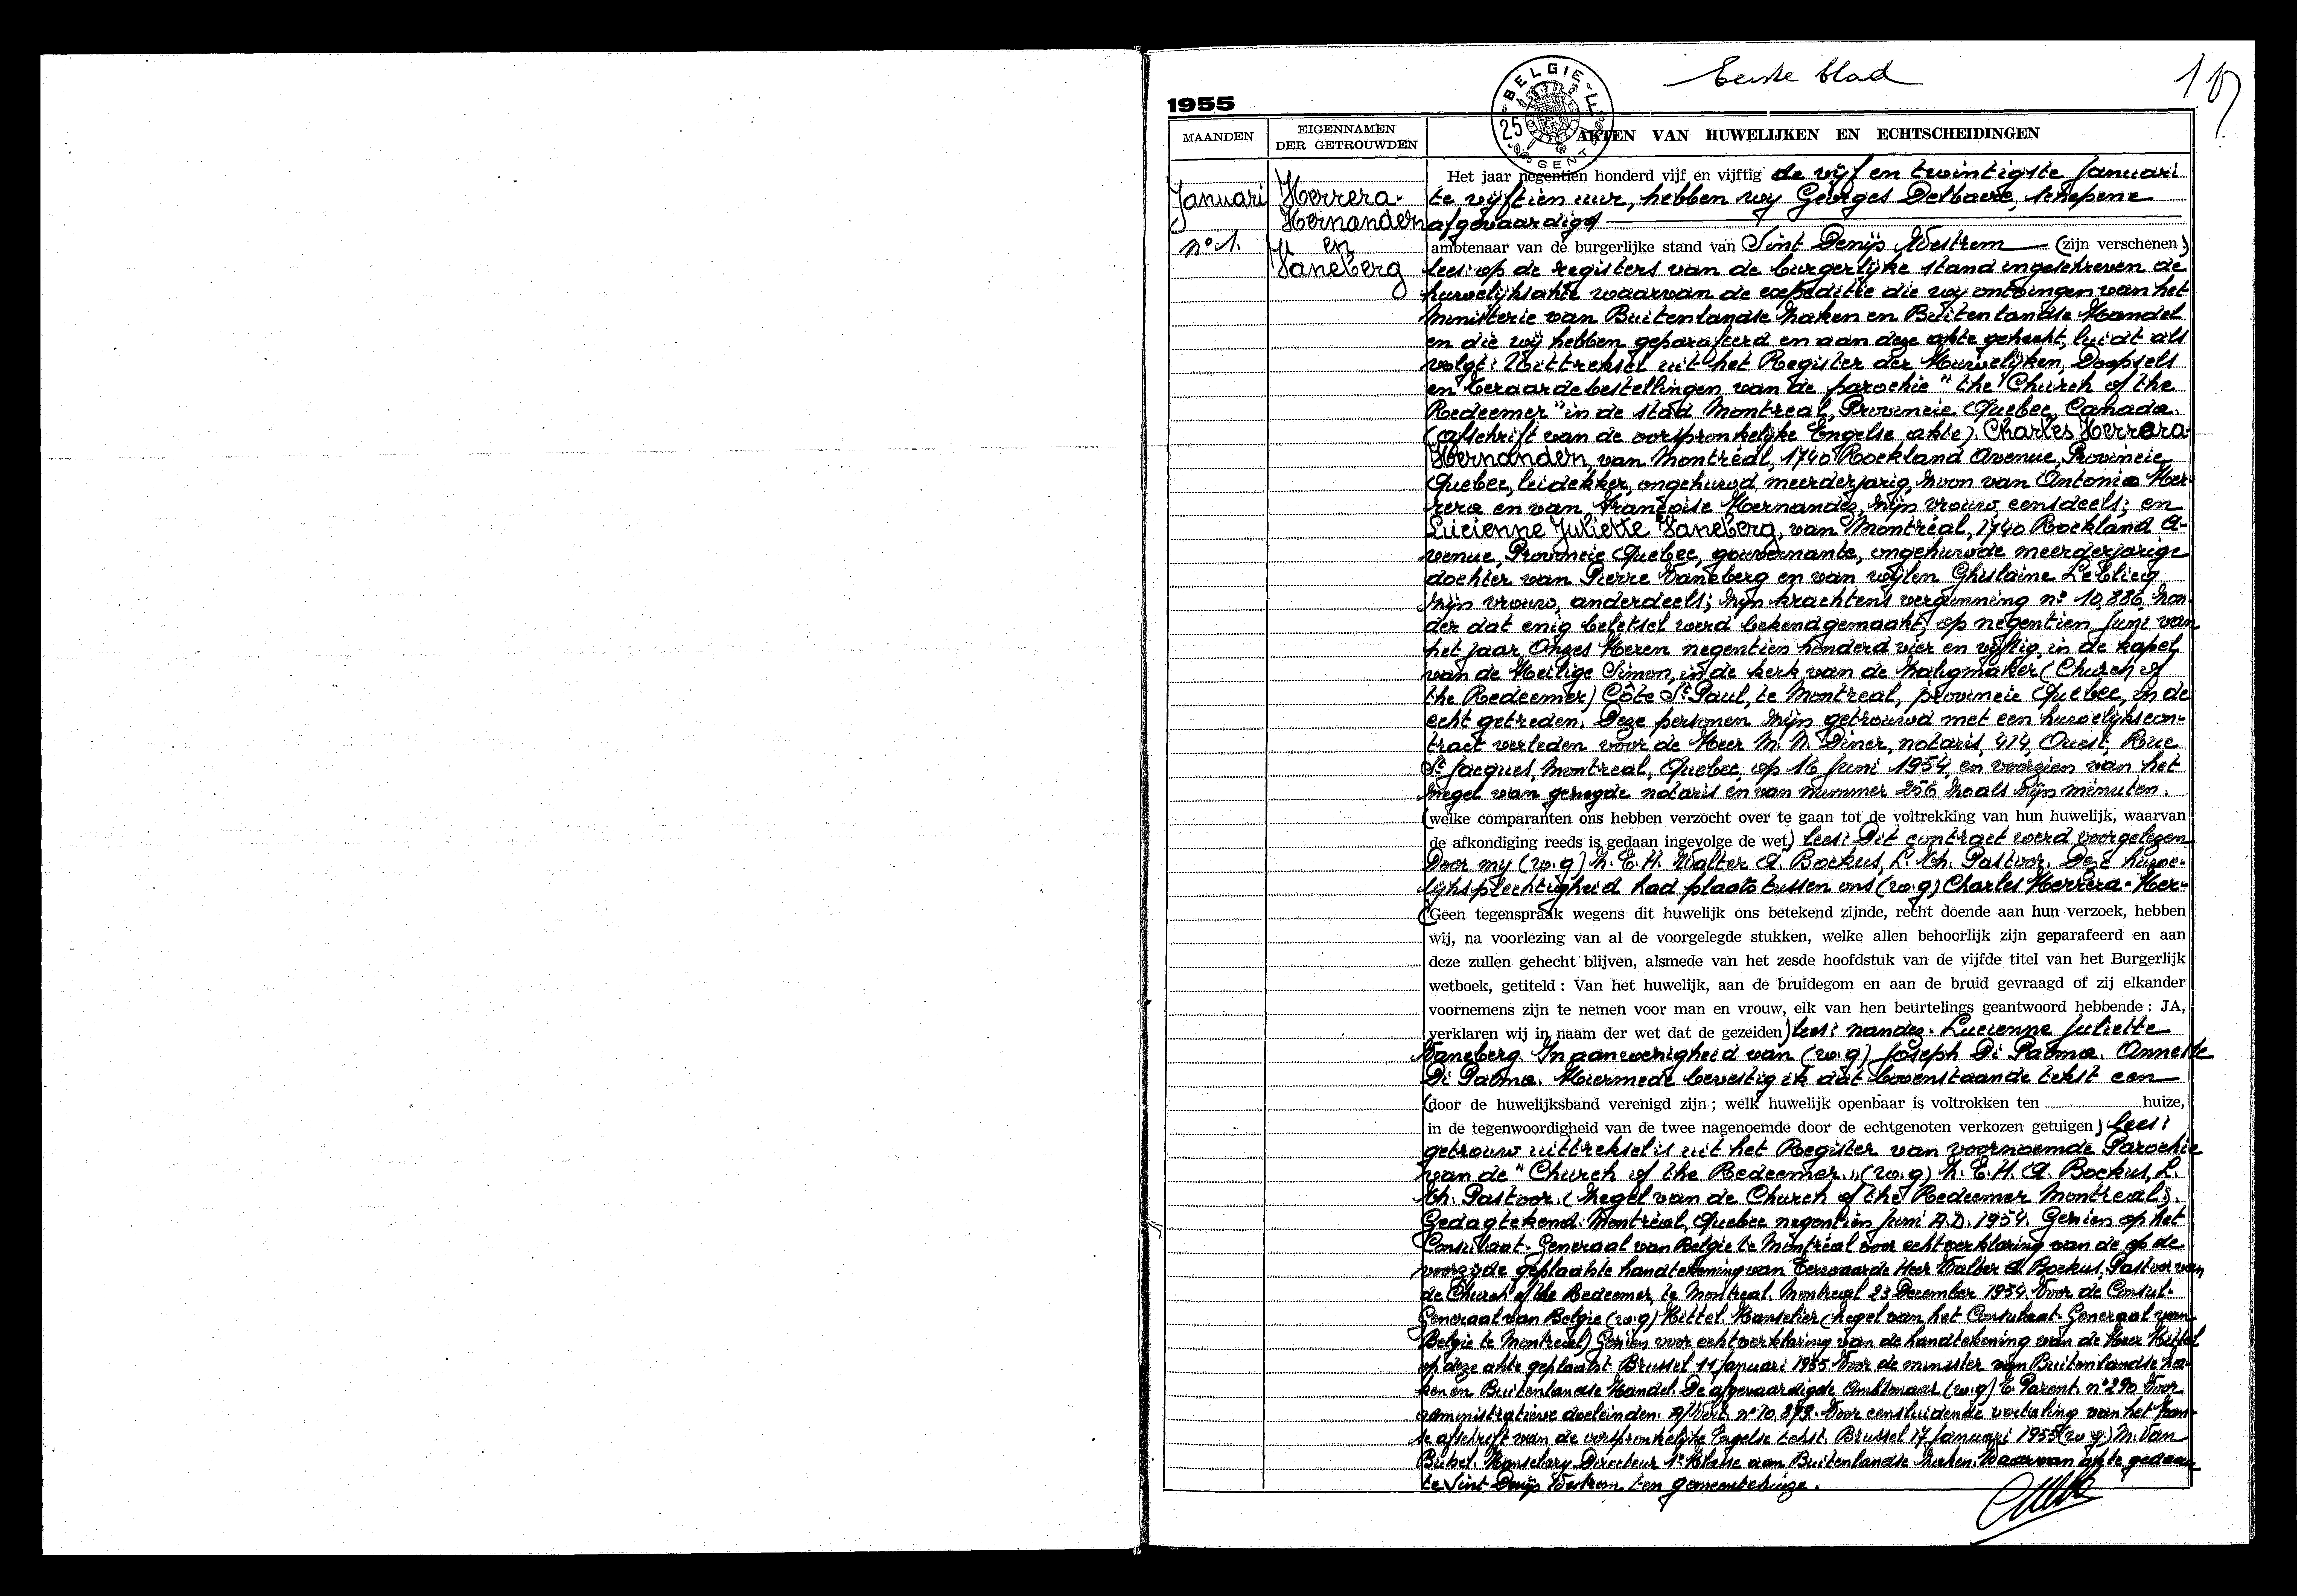 Eerste blad
1
1955
BELGIE
25
GENT
MAANDEN
EIGENNAMEN
DER GETROUWDEN
AKTEN VAN HUWELIJKEN EN ECHTSCHEIDINGEN
Januari
nº 1.
Herrera-
Hernandez
en
Vaneberg
Het jaar negentien honderd vijf en vijftig de vijf en twintigste Januari
te vijftien uur, hebben wij Georges Delbaere, schepene
afgevaardigd
ambtenaar van de burgerlijke stand van Sint Denijs Westrem (zijn verschenen)
lees: op de registers van de burgerlijke stand ingeschreven de
huwelijksakte waarvan de expeditie die wij ontvingen van het
Ministerie van Buitenlandse Zaken en Buitenlandse Handel
en die wij hebben geparafeerd en aan deze akte gehecht, luidt als
volgt: Uittreksel uit het Register der Huwelijken, Doopsels
en beraardebestellingen van de parochie "the Church of the
Redeemer" in de stad Montreal, Provincie Quebec, Canada.
(Afschrift van de oorspronkelijke Engelse akte). Charles Herrera-
Hernandez, van Montréal, 1740 Rockland Avenue, Provincie
Quebec, leidekker, ongehuwd, meerderjarig, zoon van Antonio Her-
rera en van Françoise Hernandez, zijn vrouw, eensdeels; en
Lucienne Juliette Vaneberg, van Montréal, 1740 Rockland A-
venue, Provincie Quebec, gouvernante, ongehuwde meerderjarige
dochter van Pierre Vaneberg en van wijlen Ghislaine Leblicq
zijn vrouw, anderdeels; zijn krachtens vergunning nº 10.886, zon-
der dat enig beletsel werd bekendgemaakt, op negentien Juni van
het jaar Onzes Heren negentien honderd vier en vijftig, in de kapel
van de Heilige Simon, in de kerk van de Zaligmaker (Church of
the Redeemer) Côte St Paul, te Montreal, provincie Quebec, in de
echt getreden. Deze personen zijn getrouwd met een huwelijkscon-
tract verleden voor de Heer M. N. Diner, notaris, 414, Ouest, Rue
St Jacques, Montreal, Quebec, op 16 Juni 1954 en voorzien van het
zegel van gezegde notaris en van nummer 256 zoals zijn minuten.
(welke comparanten ons hebben verzocht over te gaan tot de voltrekking van hun huwelijk, waarvan
de afkondiging reeds is gedaan ingevolge de wet) lees: Dit contract werd voorgelezen
Door mij (w.g) Z. E. H. Walter A. Bockus, L. Th. Pastoor. Deze huwe-
lijksplechtigheid had plaats tussen ons (w.g) Charles Herrera-Her-
(Geen tegenspraak wegens dit huwelijk ons betekend zijnde, recht doende aan hun verzoek, hebben
wij, na voorlezing van al de voorgelegde stukken, welke allen behoorlijk zijn geparafeerd en aan
deze zullen gehecht blijven, alsmede van het zesde hoofdstuk van de vijfde titel van het Burgerlijk
wetboek, getiteld : Van het huwelijk, aan de bruidegom en aan de bruid gevraagd of zij elkander
voornemens zijn te nemen voor man en vrouw, elk van hen beurtelings geantwoord hebbende : JA,
verklaren wij in naam der wet dat de gezeiden) lees: nandez. Lucienne Juliette
Vaneberg. In aanwezigheid van (w.g) Joseph Di Palma. Annette
Di Palma. Hiermede bevestig ik dat bovenstaande tekst een
(door de huwelijksband verenigd zijn ; welk huwelijk openbaar is voltrokken ten huize,
in de tegenwoordigheid van de twee nagenoemde door de echtgenoten verkozen getuigen) lees:
getrouw uittreksel is uit het Register van voornoemde Parochie
van de "Church of the Redeemer." (w.g) Z. E. H. A. Bockus, L.
Th. Pastoor. (Zegel van de Church of the Redeemer Montreal).
Gedagtekend: Montréal, Quebec negentien Juni A.D. 1954. Gezien op het
Consulaat-Generaal van Belgie te Montréal voor echtverklaring van de op de
voorzijde geplaatste handtekening van Eerwaarde Heer Walter A. Bockus, Pastoor van
de Church of the Redeemer, te Montreal. Montreal 23 December 1954. Voor de Consul-
Generaal van Belgie (w.g) Kittel. Kanselier (Zegel van het Consulaat-Generaal van
Belgie te Montreal) Gezien voor echtverklaring van de handtekening van de Heer Kittel
op deze akte geplaatst. Brussel 11 Januari 1955. Voor de minister van Buitenlandse Za-
ken en Buitenlandse Handel. De afgevaardigde Ambtenaar (w.g) E. Parent. nº 290 Voor
administratieve doeleinden. nº 10.898. Voor eensluidende vertaling van het Fran-
se afschrift van de oorspronkelijke Engelse tekst. Brussel 17 Januari 1955 (w.g) M. Van
Bickel. Kanselary Directeur 1e Klasse aan Buitenlandse Zaken. Waarvan akte gedaan
te Sint Denijs Westrem ten gemeentehuize.